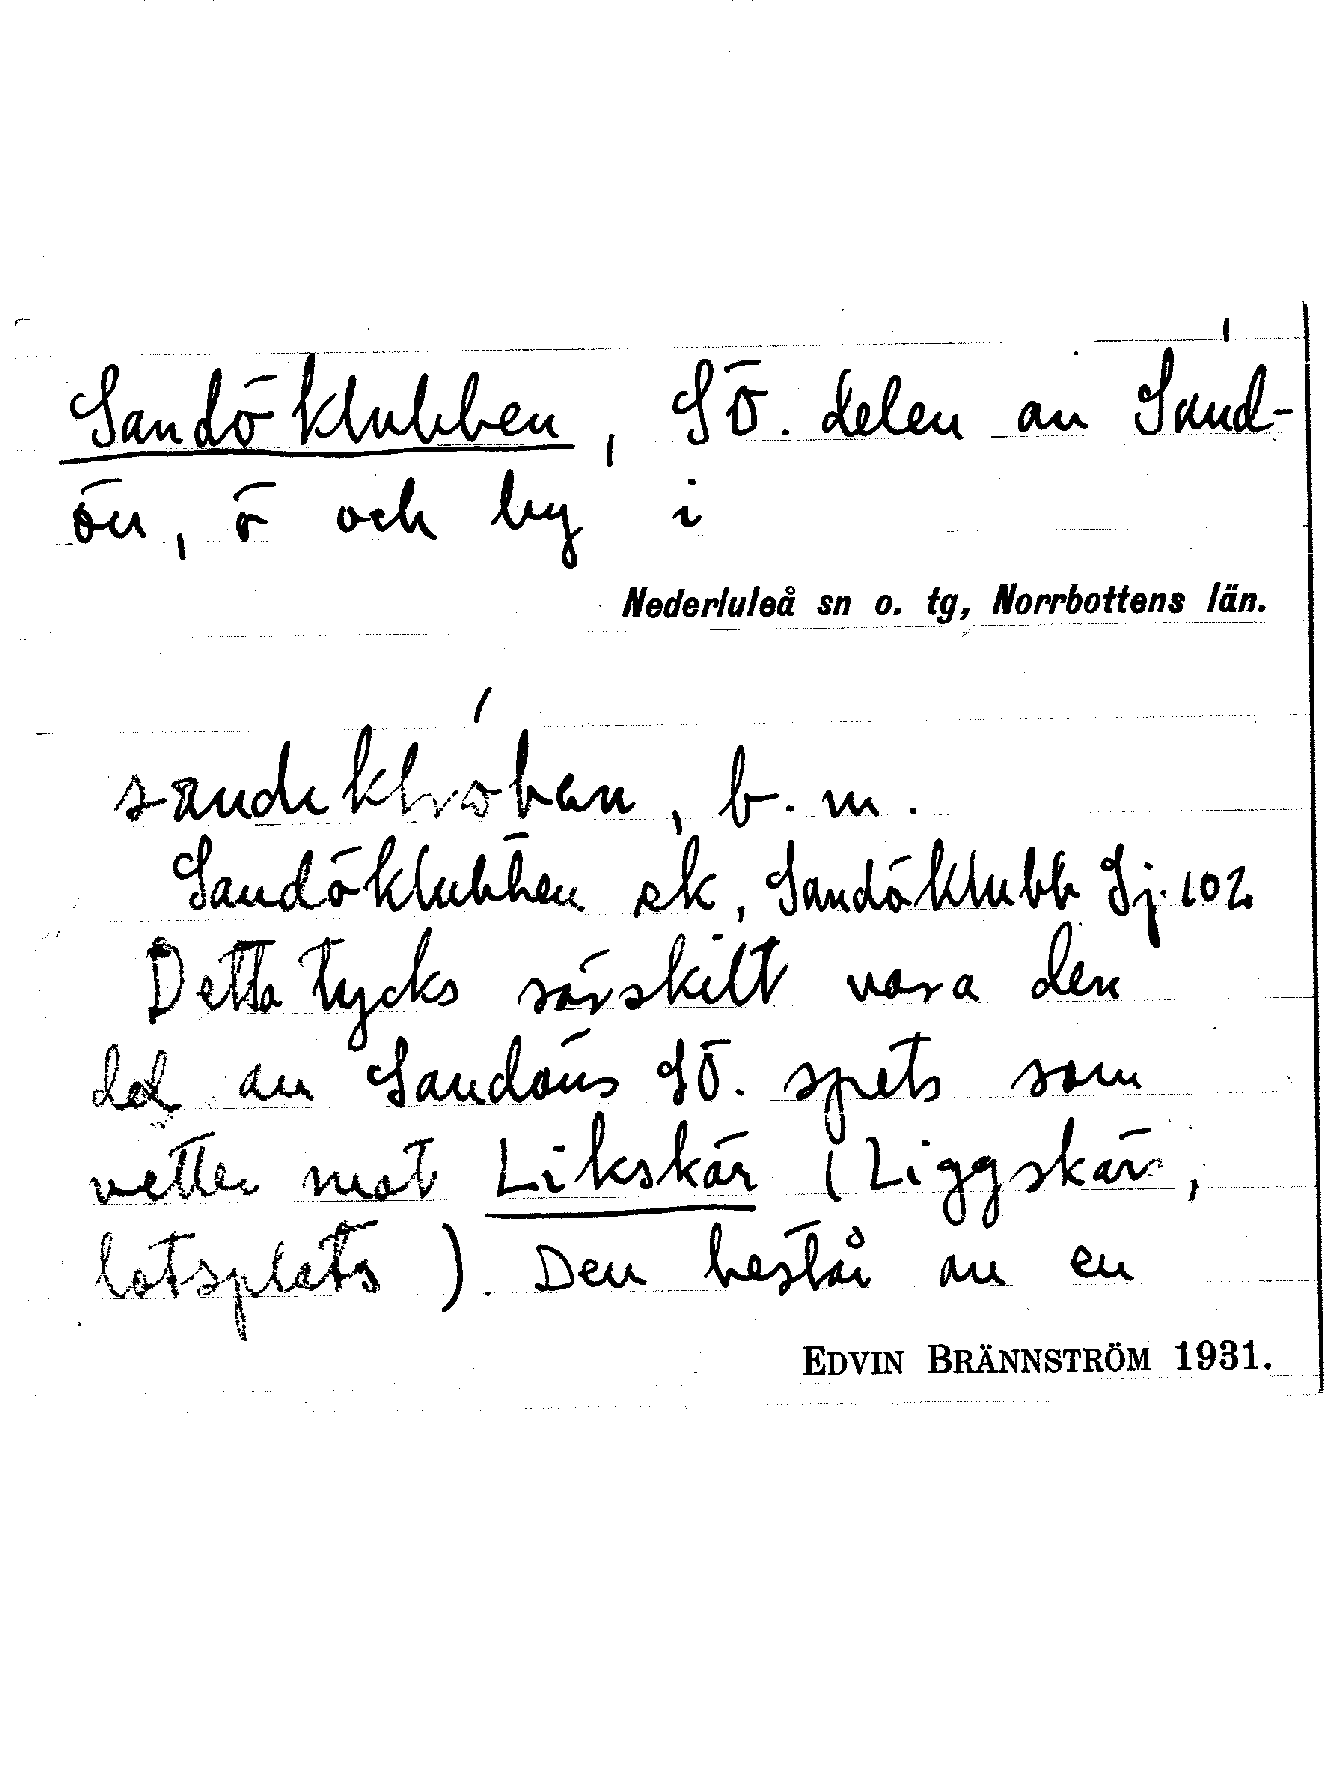 Sandöklubben, SÖ. delen av Sand-
ön, ö och by i
Nederluleå sn o. tg, Norrbottens län.
b. m.
Sandöklubben ek, Sandöklubb Sj. 102
Detta tycks särskilt vara den
del av Sandöns SÖ. spets som
vetter mot Likskär (Liggskär,
lotsplats). Den består av en
EDVIN BRÄNNSTRÖM 1931.